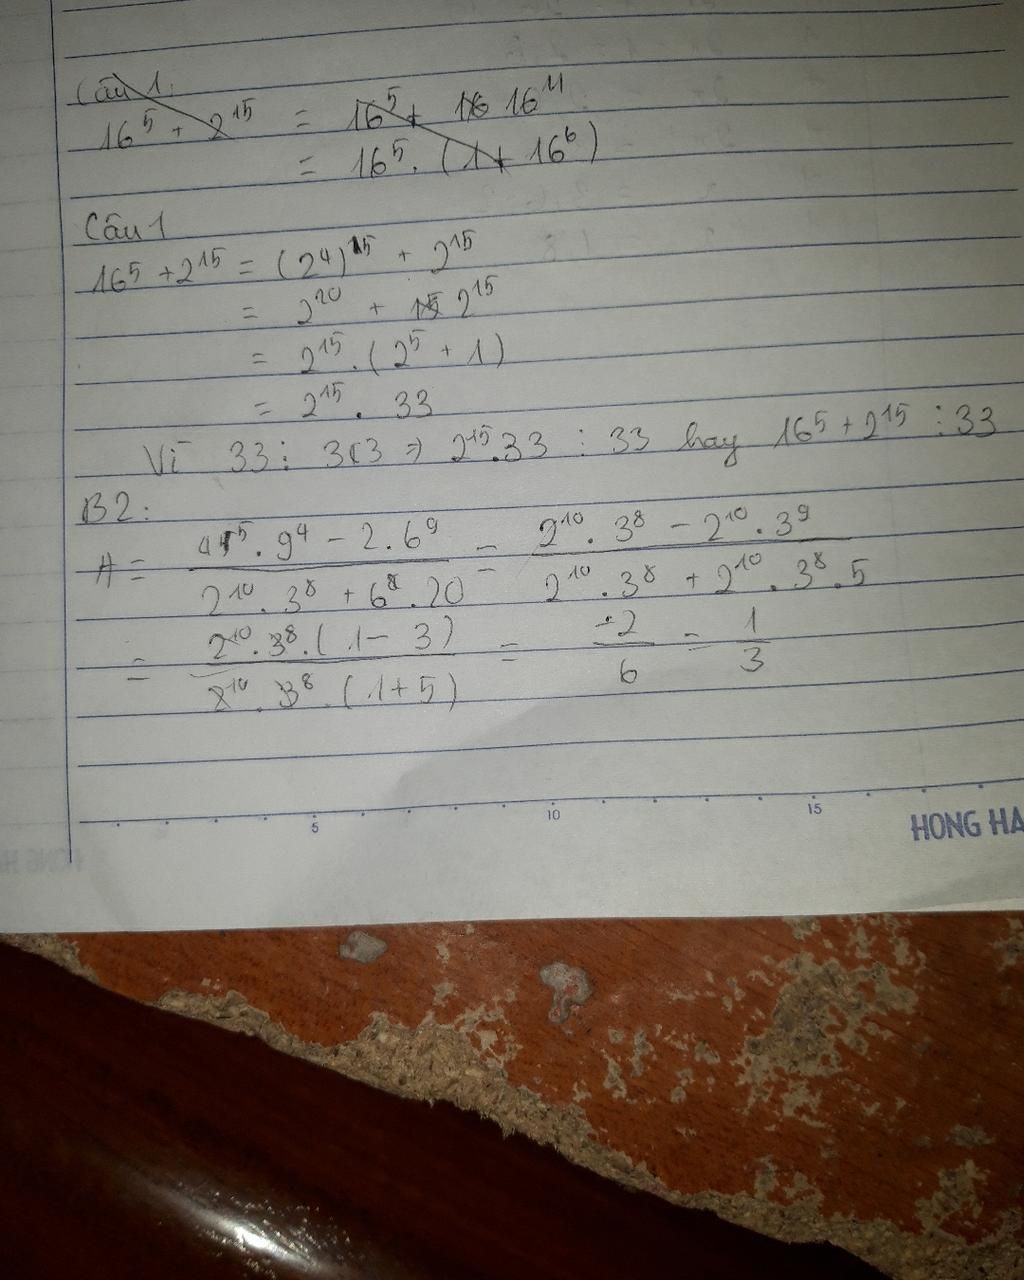 Câu 1:
16^5 + 2^15 = 16^5 + 16 16^11
= 16^5 . (1 + 16^6)
Câu 1
16^5 + 2^15 = (2^4)^5 + 2^15
= 2^20 + 2^15
= 2^15 . (2^5 + 1)
= 2^15 . 33
Vì 33 ⋮ 33 => 2^15.33 ⋮ 33 hay 16^5 + 2^15 ⋮ 33
B2:
A = (4^5 . 9^4 - 2 . 6^9) / (2^10 . 3^8 + 6^8 . 20) = (2^10 . 3^8 - 2^10 . 3^9) / (2^10 . 3^8 + 2^10 . 3^8 . 5)
= (2^10 . 3^8 . (1 - 3)) / (2^10 . 3^8 . (1 + 5)) = -2/6 = 1/3
5 10 15
HONG HA